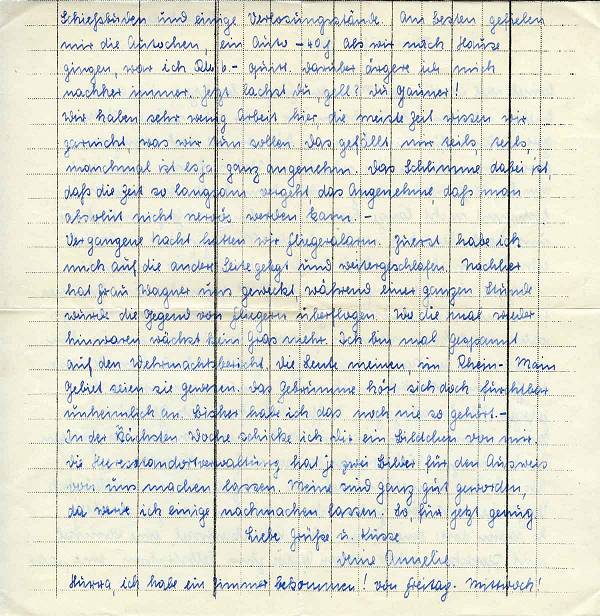 Schießbuden und einige Verlosungsstände. Am besten gefielen
mir die Autochen, ein Auto -40 als wir nach Hause
gingen, war ich quitt. Darüber ärgere ich mich
nachher immer. Jetzt lachst Du, gell? Du Gauner!
Wir haben sehr wenig Arbeit hier die meiste Zeit wissen wir
garnicht, was wir tun sollen. Das gefällt mir teils teils,
manchmal ist es ja ganz angenehm. Das Schlimme dabei ist,
daß die Zeit so langsam vergeht das Angenehme, daß man
absolut nicht nervös werden kann. -
Vergangene Nacht hatten wir Fliegeralarm. Zuerst habe ich
mich auf die andere Seite gelegt und weitergeschlafen. Nachher
hat Frau Wagner uns geweckt, während einer ganzen Stunde
wurde die Gegend von Fliegern überflogen. Wo die mal wieder
hinwaren wächst kein Gras mehr. Ich bin mal gespannt
auf den Wehrmachtsbericht, die Leute meinen, im Rhein-Main
Gebiet seien sie gewesen. Das Gebrumme hört sich doch furchtbar
unheimlich an. Bisher habe ich das noch nie so gehört. -
In der nächsten Woche schicke ich Dir ein Bildchen von mir.
Die Heeresstandortverwaltung hat je zwei Bilder für den Ausweis
von uns machen lassen. Meine sind ganz gut geworden,
da werde ich einige nachmachen lassen. So, für jetzt genug.
Liebe Grüße u. Küsse
Deine Annelie.
Hurra, ich habe ein Zimmer bekommen! von Freitag - Mittwoch!